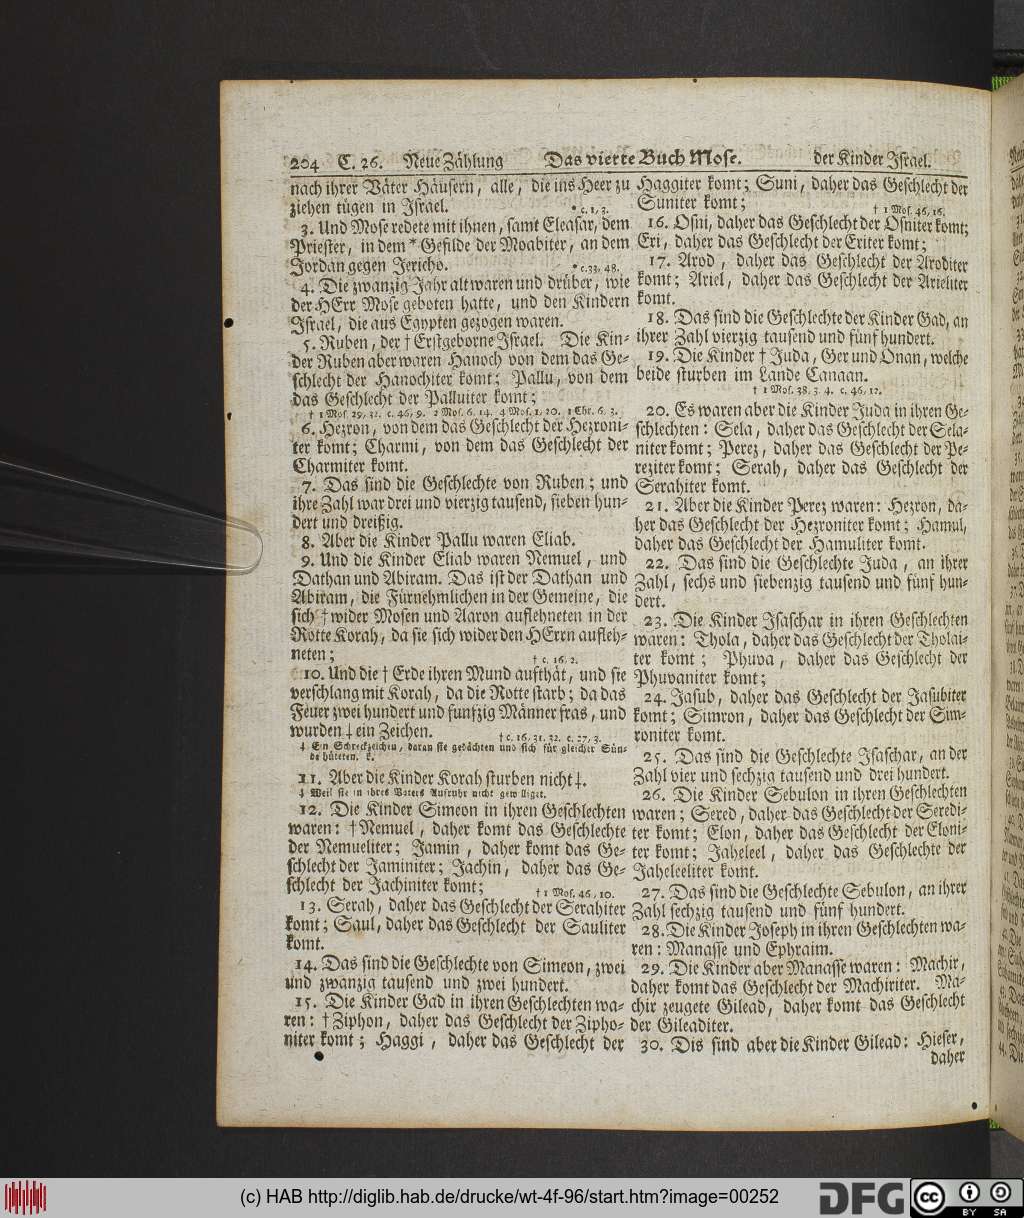 204 C. 26. Neue Zählung Das vierte Buch Mose. der Kinder Israel.
nach ihrer Väter Häusern, alle, die ins Heer zu
ziehen tügen in Israel. * c. 1, 3.
3. Und Mose redete mit ihnen, samt Eleasar, dem
Priester, in dem * Gefilde der Moabiter, an dem
Jordan gegen Jericho. * c. 33, 48.
4. Die zwanzig Jahr alt waren und drüber, wie
der HErr Mose geboten hatte, und den Kindern
Israel, die aus Egypten gezogen waren.
5. Ruben, der † Erstgeborne Israel. Die Kin-
der Ruben aber waren Hanoch von dem das Ge-
schlecht der Hanochiter komt; Pallu, von dem
das Geschlecht der Palluiter komt;
† 1 Mos. 29, 32. c. 46, 9. 2 Mos. 6. 14. 4 Mos. 1, 20. 1 Chr. 6. 3.
6. Hezron, von dem das Geschlecht der Hezroni-
ter komt; Charmi, von dem das Geschlecht der
Charmiter komt.
7. Das sind die Geschlechte von Ruben; und
ihre Zahl war drei und vierzig tausend, sieben hun-
dert und dreißig.
8. Aber die Kinder Pallu waren Eliab.
9. Und die Kinder Eliab waren Nemuel, und
Dathan und Abiram. Das ist der Dathan und
Abiram, die Fürnehmlichen in der Gemeine, die
sich † wider Mosen und Aaron auflehneten in der
Rotte Korah, da sie sich wider den HErrn aufleh-
neten; † c. 16, 2.
10. Und die † Erde ihren Mund aufthät, und sie
verschlang mit Korah, da die Rotte starb; da das
Feuer zwei hundert und funfzig Männer fras, und
wurden ‡ ein Zeichen. † c. 16, 31. 32. c. 27, 3.
‡ Ein Schreckzeichen, daran sie gedächten und sich für gleicher Sün-
de hüteten. ꝛc.
11. Aber die Kinder Korah sturben nicht ‡.
‡ Weil sie in ihres Vaters Aufruhr nicht gewilliget.
12. Die Kinder Simeon in ihren Geschlechten
waren: † Nemuel, daher komt das Geschlechte
der Nemueliter; Jamin, daher komt das Ge-
schlecht der Jaminiter; Jachin, daher das Ge-
schlecht der Jachiniter komt; † 1 Mos. 46, 10.
13. Serah, daher das Geschlecht der Serahiter
komt; Saul, daher das Geschlecht der Sauliter
komt.
14. Das sind die Geschlechte von Simeon, zwei
und zwanzig tausend und zwei hundert.
15. Die Kinder Gad in ihren Geschlechten wa-
ren: † Ziphon, daher das Geschlecht der Zipho-
niter komt; Haggi, daher das Geschlecht der
Haggiter komt; Suni, daher das Geschlecht der
Suniter komt; † 1 Mos. 46, 16.
16. Osni, daher das Geschlecht der Osniter komt;
Eri, daher das Geschlecht der Eriter komt;
17. Arod, daher das Geschlecht der Aroditer
komt; Ariel, daher das Geschlecht der Arieliter
komt.
18. Das sind die Geschlechte der Kinder Gad, an
ihrer Zahl vierzig tausend und fünf hundert.
19. Die Kinder † Juda, Ger und Onan, welche
beide sturben im Lande Canaan.
† 1 Mos. 38, 3. 4. c. 46, 12.
20. Es waren aber die Kinder Juda in ihren Ge-
schlechten: Sela, daher das Geschlecht der Sela-
niter komt; Perez, daher das Geschlecht der Pe-
reziter komt; Serah, daher das Geschlecht der
Serahiter komt.
21. Aber die Kinder Perez waren: Hezron, da-
her das Geschlecht der Hezroniter komt; Hamul,
daher das Geschlecht der Hamuliter komt.
22. Das sind die Geschlechte Juda, an ihrer
Zahl, sechs und siebenzig tausend und fünf hun-
dert.
23. Die Kinder Isaschar in ihren Geschlechten
waren: Thola, daher das Geschlecht der Tholai-
ter komt; Phuva, daher das Geschlecht der
Phuvaniter komt;
24. Jasub, daher das Geschlecht der Jasubiter
komt; Simron, daher das Geschlecht der Sim-
roniter komt.
25. Das sind die Geschlechte Isaschar, an der
Zahl vier und sechzig tausend und drei hundert.
26. Die Kinder Sebulon in ihren Geschlechten
waren; Sered, daher das Geschlecht der Seredi-
ter komt; Elon, daher das Geschlecht der Eloni-
ter komt; Jaheleel, daher das Geschlechte der
Jaheleeliter komt.
27. Das sind die Geschlechte Sebulon, an ihrer
Zahl sechzig tausend und fünf hundert.
28. Die Kinder Joseph in ihren Geschlechten wa-
ren: Manasse und Ephraim.
29. Die Kinder aber Manasse waren: Machir,
daher komt das Geschlecht der Machiriter. Ma-
chir zeugete Gilead, daher komt das Geschlecht
der Gileaditer.
30. Dis sind aber die Kinder Gilead: Hieser,
daher
(c) HAB http://diglib.hab.de/drucke/wt-4f-96/start.htm?image=00252
DFG
cc
BY SA